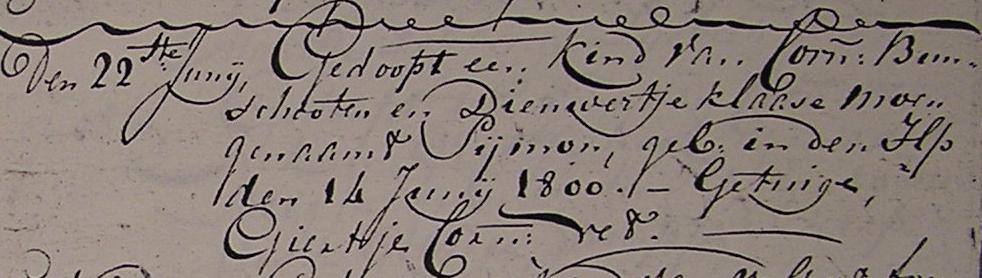 Den 22ste Junij, Gedoopt een kind van Corn: Bun-
schooten en Dieuwertje klaase moen
genaamt Sijmon, geb: in den Ilp
den 14 Junij 1800. – Getuige,
Giertje Corn: